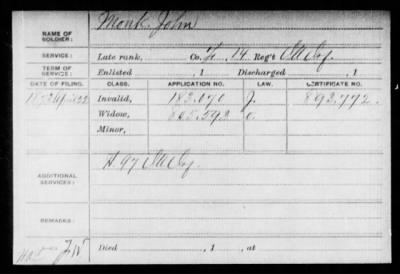 NAME OF SOLDIER: Monk, John
SERVICE: Late rank, Co. F, 14 Reg't Ill Cy.
TERM OF SERVICE: Enlisted , 1 Discharged , 1
DATE OF FILING. CLASS. APPLICATION NO. LAW. CERTIFICATE NO.
Invalid, 183.070 J. 893.772
Widow, 605.592
Minor,
ADDITIONAL SERVICES: H 97
REMARKS:
Died , 1 , at